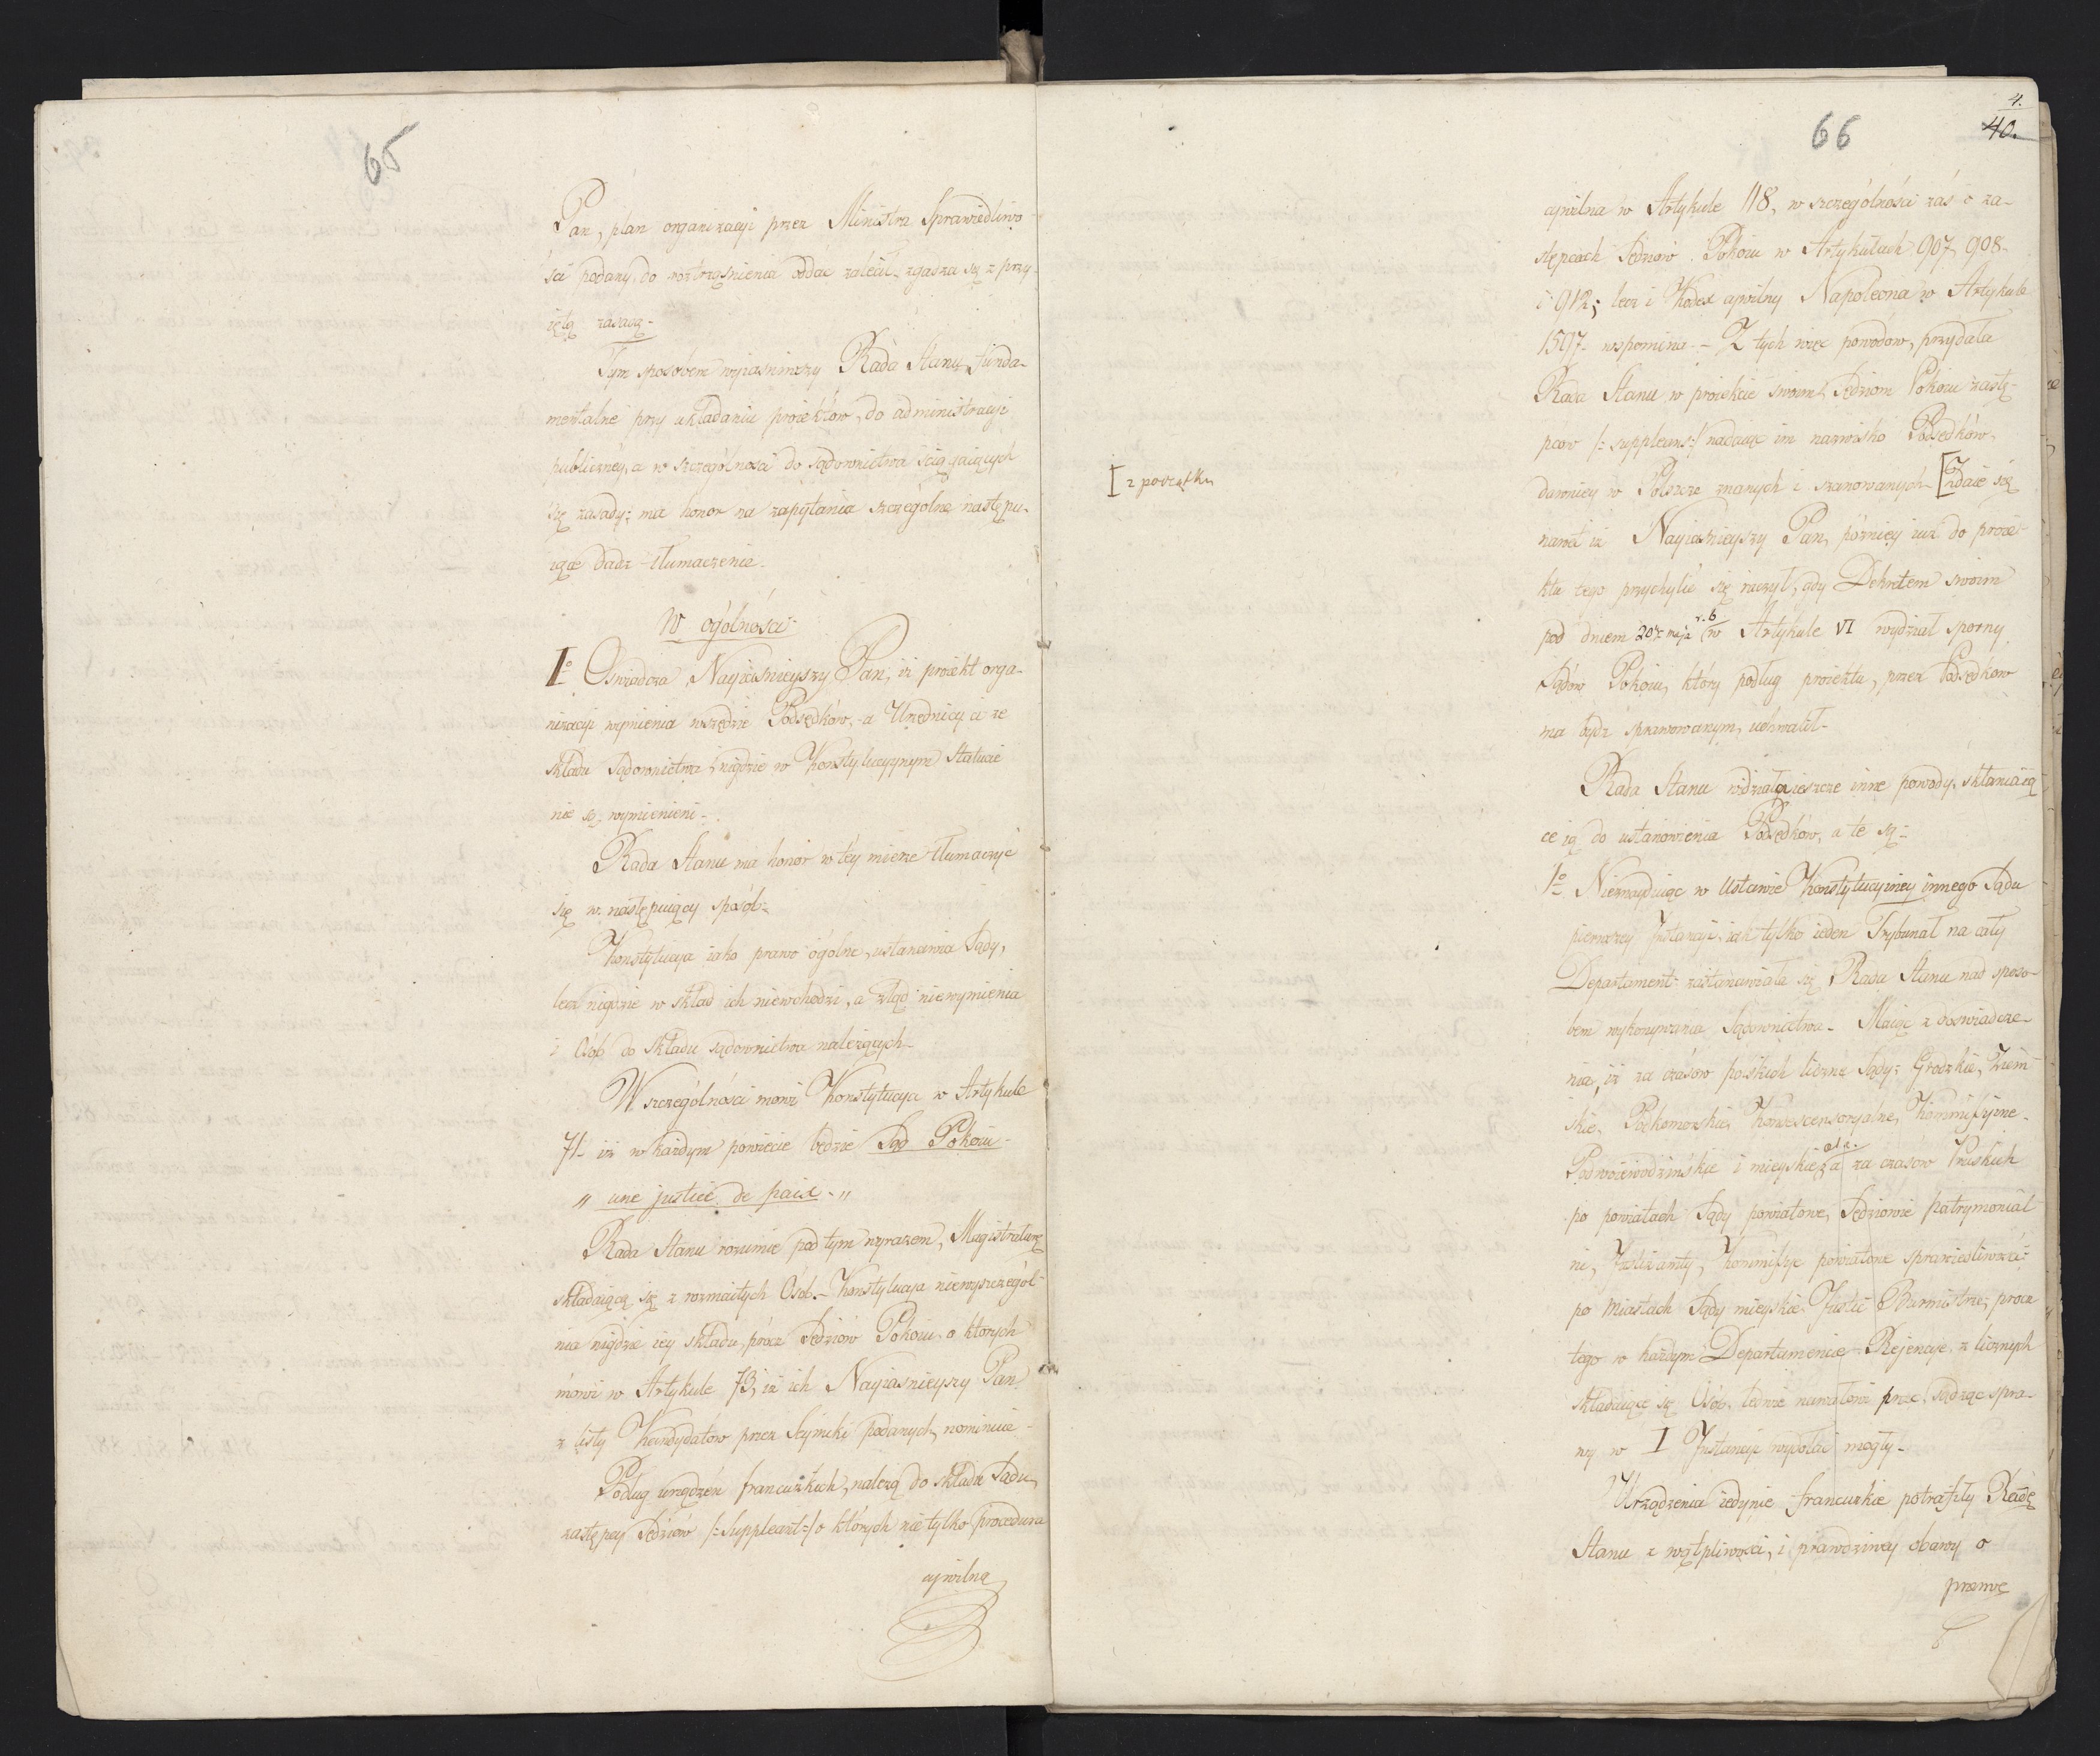 65
Pan, plan organizacyi przez Ministra Sprawiedliwo-
ści podany, do roztrząśnienia oddać zalecił, zgadza się z przy-
iętą zasadą.
Tym sposobem wyiaśniwszy Rada Stanu funda-
mentalne przy układaniu proiektów, do administracyi
publiczney, a w szczególności do sądownictwa ściągaiących
się zasady; ma honor na zapytania szczególne następu-
iące dadź tłumaczenie.
W ogólności.
Iº Oświadcza Nayiaśnieyszy Pan, iż proiekt orga-
nizacyi wymienia wszędzie Podsędków, a Urzędnicy ci ze
składu sądownictwa, nigdzie w Konstytucyynym Statucie
nie są wymienieni.
Rada Stanu ma honor w tey mierze tłumaczyć
się w następuiący sposób.
Konstytucya iako prawo ogólne, ustanawia Sądy,
lecz nigdzie w skład ich niewchodzi, a ztąd niewymienia
i Osób do składu sądownictwa należących.
W szczególności mówi Konstytucya w Artykule
71. iż w każdym powiecie będzie Sąd Pokoiu
„ une justice de paix. „
Rada Stanu rozumie pod tym wyrazem, Magistraturę
składaiącą się z rozmaitych Osób. Konstytucya niewyszczegól-
nia nigdzie iey składu, prócz Sędziów Pokoiu, o których
mówi w Artykule 73, iż ich Nayiaśnieyszy Pan
z listy Kandydatów przez Seymiki podanych, nominuie
Podług urządzeń francuzkich, należą do składu Sądu,
zastępcy Sędziów /: Suppleant :/ o których nie tylko procedura
cywilna
4.
40.
66
cywilna w Artykule 118, w szczególności zaś o za-
stępcach Sędziów Pokoiu w Artykułach 907, 908
i 912; lecz i Kodex cywilny Napoleona w Artykule
1597. wspomina. – Z tych więc powodów, przydała
Rada Stanu w proiekcie swoim, Sędziom Pokoiu zastę-
pców /: suppleans :/ nadaiąc im nazwisko Podsędków,
dawniey w Polszcze znanych i szanowanych. [Zdaie się
[z początku
nawet iż Nayiaśnieyszy Pan, pózniey iuż do proie-
ktu tego przychylić się raczył, gdy Dekretem swoim
pod dniem 20. maja r. b. w Artykule VI wydział sporny
Sądów Pokoiu, który podług proiektu, przez Podsędków
ma bydź sprawowanym, uchwalił.
Rada Stanu widziała ieszcze inne powody, skłaniaią-
ce ią do ustanowienia Podsędków, a te są:
1º Nieznayduiąc w Ustawie Konstytucyiney innego Sądu
pierwszey Instancyi, iak tylko ieden Trybunał na cały
Departament: zastanawiała się Rada Stanu nad sposo-
bem wykonywania Sądownictwa. Maiąc z doświadcze-
nia, iż za czasów polskich liczne Sądy: Grodzkie, Ziem-
skie, Podkomorskie, Kondescensoryalne, Kommissyine,
Podwoiewodzińskie i mieyskie; a za czasów Pruskich
po powiatach Sądy powiatowe, Sędziowie patrymonial-
ni, Justizamty, Kommissye powiatowe sprawiedliwości:
po Miastach Sądy mieyskie, Justic Burmistrze, prócz
tego w każdym Departamencie Rejencye, z licznych
składaiące się Osób, ledwie nawałowi prac, sądząc spra-
wy w I Instancyi wydołać mogły.
Urządzenia iedynie francuzkie potrafiły Radę
Stanu z wątpliwości, i prawdziwey obawy o
prawie